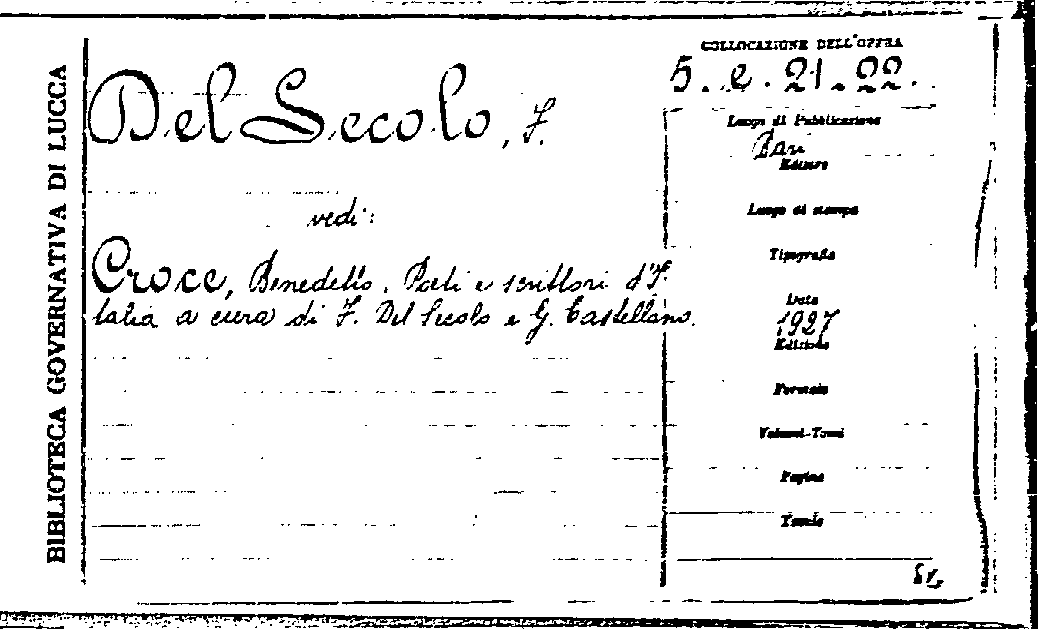 BIBLIOTECA GOVERNATIVA DI LUCCA
COLLOCAZIONE DELL'OPERA
5. e. 21. 22.
Del Secolo, F.
vedi:
Croce, Benedetto. Poeti e scrittori d'I-
talia a cura di F. Del Secolo e G. Castellano.
Luogo di Pubblicazione
Bari
Editore
Luogo di stampa
Tipografia
Data
1927
Edizione
Formato
Volumi-Tomi
Pagine
Tavole